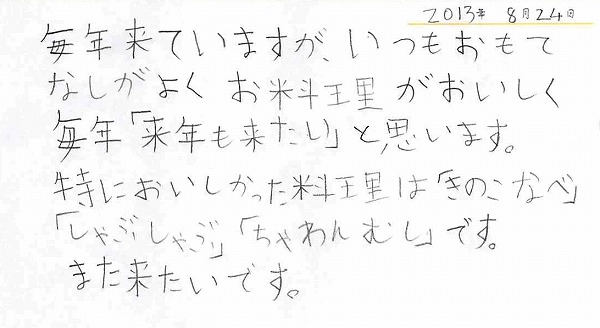 2013年 8月24日
毎年来ていますが、いつもおもて
なしがよく お料理がおいしく
毎年「来年も来たい」と思います。
特においしかった料理は「きのこなべ」
「しゃぶしゃぶ」「ちゃわんむし」です。
また来たいです。